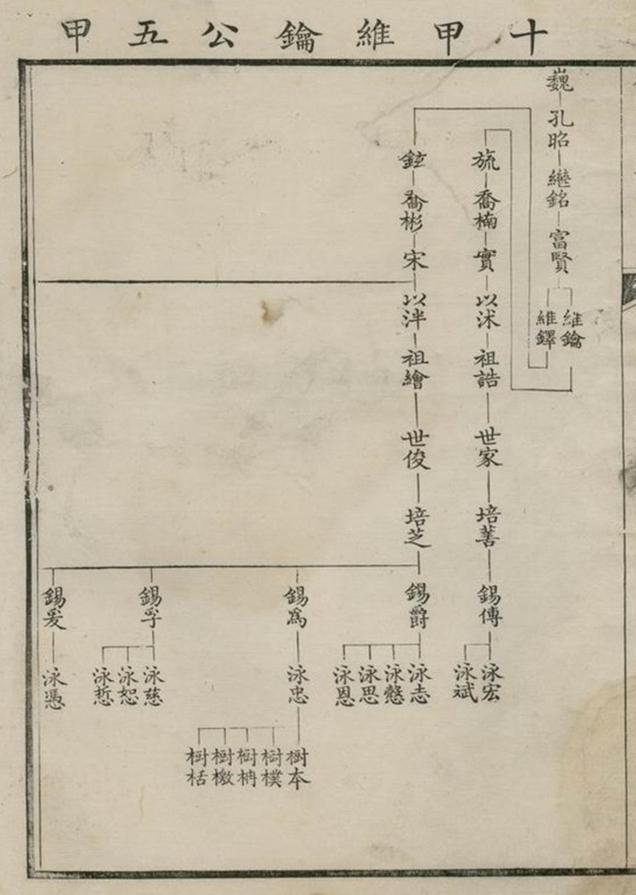 十甲維鑰公五甲
巍
孔昭
繼銘
富賢
維鑰
維鐸
旒
喬楠
實
以沭
祖誥
世家
培善
錫傳
泳宏
泳斌
鉉
喬彬
宋
以泮
祖繪
世俊
培芝
錫爵
泳志
泳慤
泳思
泳恩
錫爲
泳忠
樹本
樹樸
樹柟
樹檄
樹栝
錫孚
泳慈
泳恕
泳悊
錫爰
泳憑